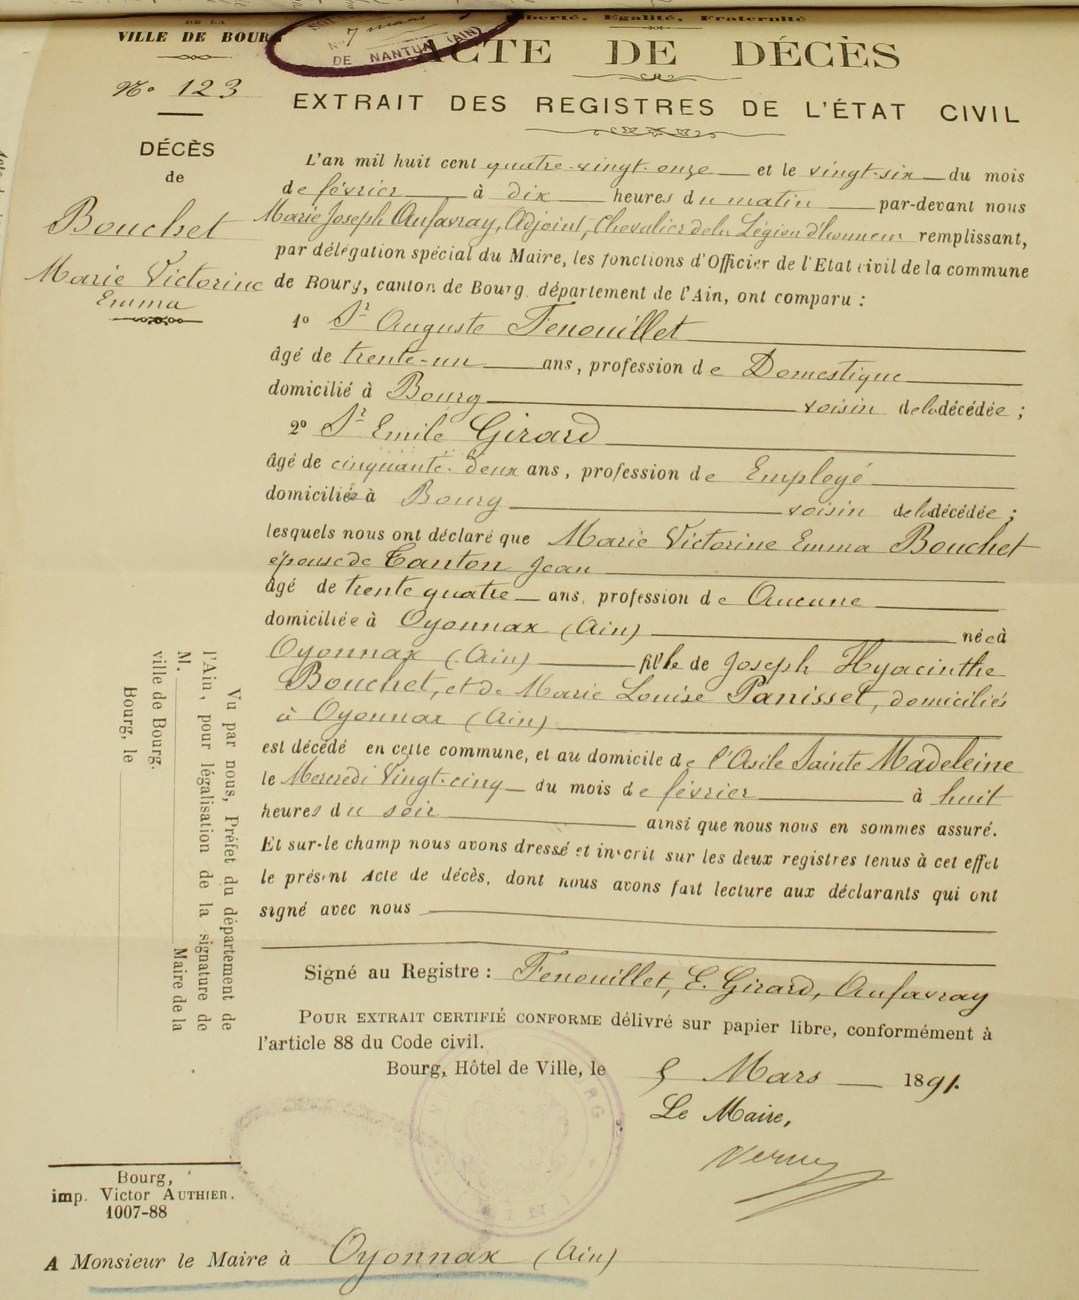 DE LA
VILLE DE BOURG
Nº 123
DÉCÈS
de
Bouchet
Marie Victorine
Emma
Nº 7 mars
DE NANTUA (AIN)
Liberté, Égalité, Fraternité
ACTE DE DÉCÈS
EXTRAIT DES REGISTRES DE L'ÉTAT CIVIL
L'an mil huit cent quatre-vingt-onze et le vingt-six du mois
de février à dix heures du matin par-devant nous
Marie Joseph Aufavray, Adjoint, Chevalier de la Légion d'honneur remplissant,
par délégation spécial du Maire, les fonctions d'Officier de l'Etat civil de la commune
de Bourg, canton de Bourg département de l'Ain, ont comparu :
1º Sr Auguste Fenouillet
âgé de trente-un ans, profession de Domestique
domicilié à Bourg voisin de la décédée ;
2º Sr Emile Girard
âgé de cinquante-deux ans, profession de Employé
domicilié à Bourg voisin de la décédée ;
lesquels nous ont déclaré que Marie Victorine Emma Bouchet
épouse de Tanton Jean
âgé de trente quatre ans, profession de Aucune
domiciliée à Oyonnax (Ain) née à
Oyonnax (Ain) fille de Joseph Hyacinthe
Bouchet, et de Marie Louise Panisset, domiciliés
à Oyonnax (Ain)
est décédé en cette commune, et au domicile de l'Asile Sainte Madeleine
le Mercredi Vingt-cinq du mois de février à huit
heures du soir ainsi que nous nous en sommes assuré.
Et sur-le champ nous avons dressé et inscrit sur les deux registres tenus à cet effet
le présent Acte de décès, dont nous avons fait lecture aux déclarants qui ont
signé avec nous
Signé au Registre : Fenouillet, E. Girard, Aufavray
POUR EXTRAIT CERTIFIÉ CONFORME délivré sur papier libre, conformément à
l'article 88 du Code civil.
Bourg, Hôtel de Ville, le 5 Mars 1891.
Le Maire,
Vu par nous, Préfet du département de
l'Ain, pour légalisation de la signature de
M. Maire de la
ville de Bourg.
Bourg, le
Bourg,
imp. Victor AUTHIER.
1007-88
A Monsieur le Maire à Oyonnax (Ain)